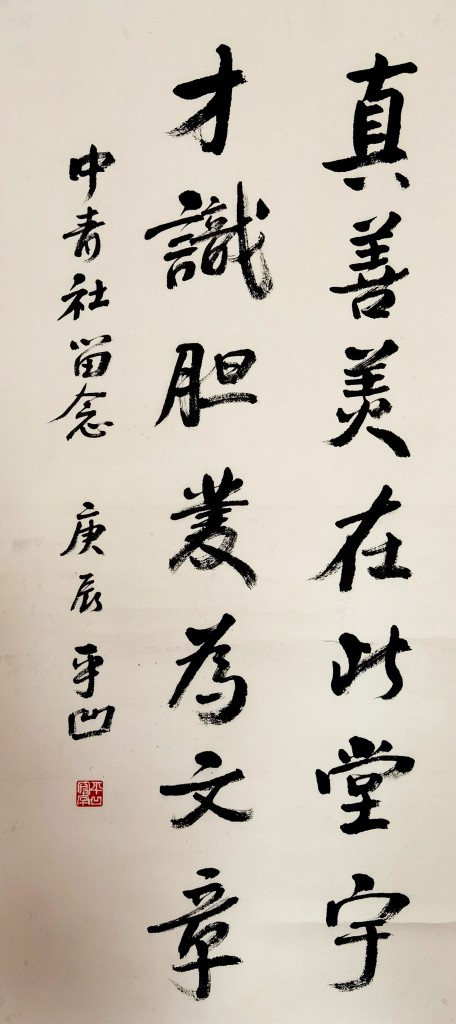 真善美在此堂宇
才識胆叢為文章
中青社留念 庚辰 平凹